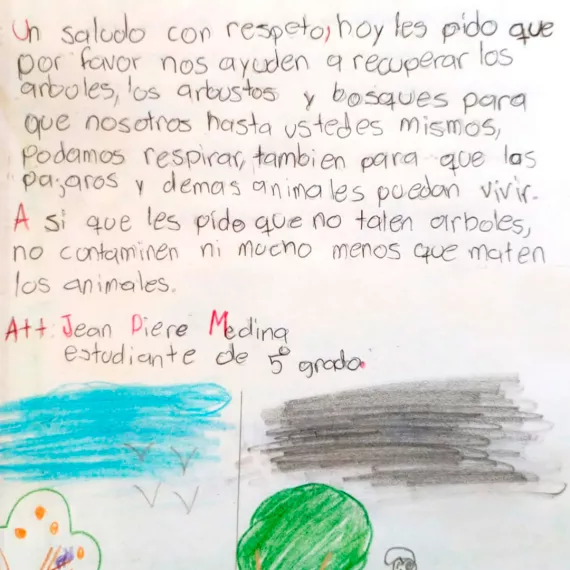 Un saludo con respeto, hoy les pido que
por favor nos ayuden a recuperar los
arboles, los arbustos y bosques para
que nosotros hasta ustedes mismos,
Podamos respirar, tambien para que los
pajaros y demas animales puedan vivir.
A si que les pido que no talen arboles,
no contaminen ni mucho menos que maten
los animales.
Att: Jean Piere Medina
estudiante de 5° grado.